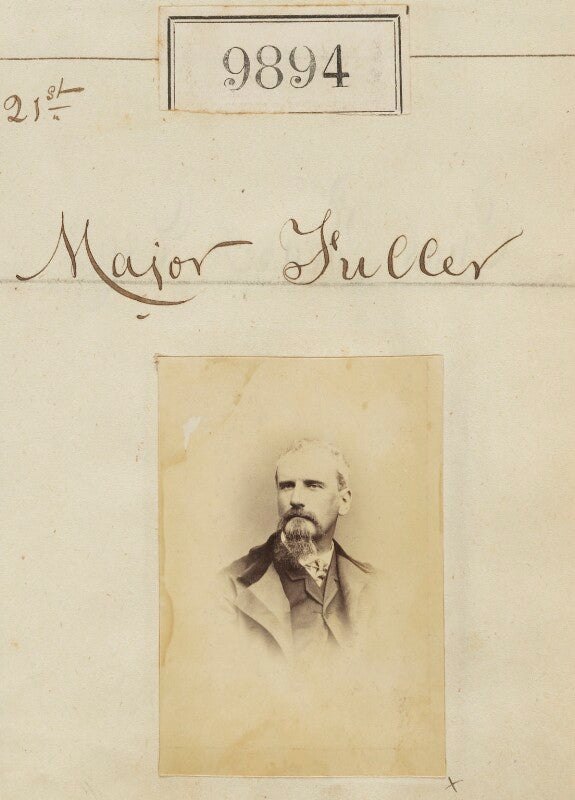 9894
21st
Major Fuller
x